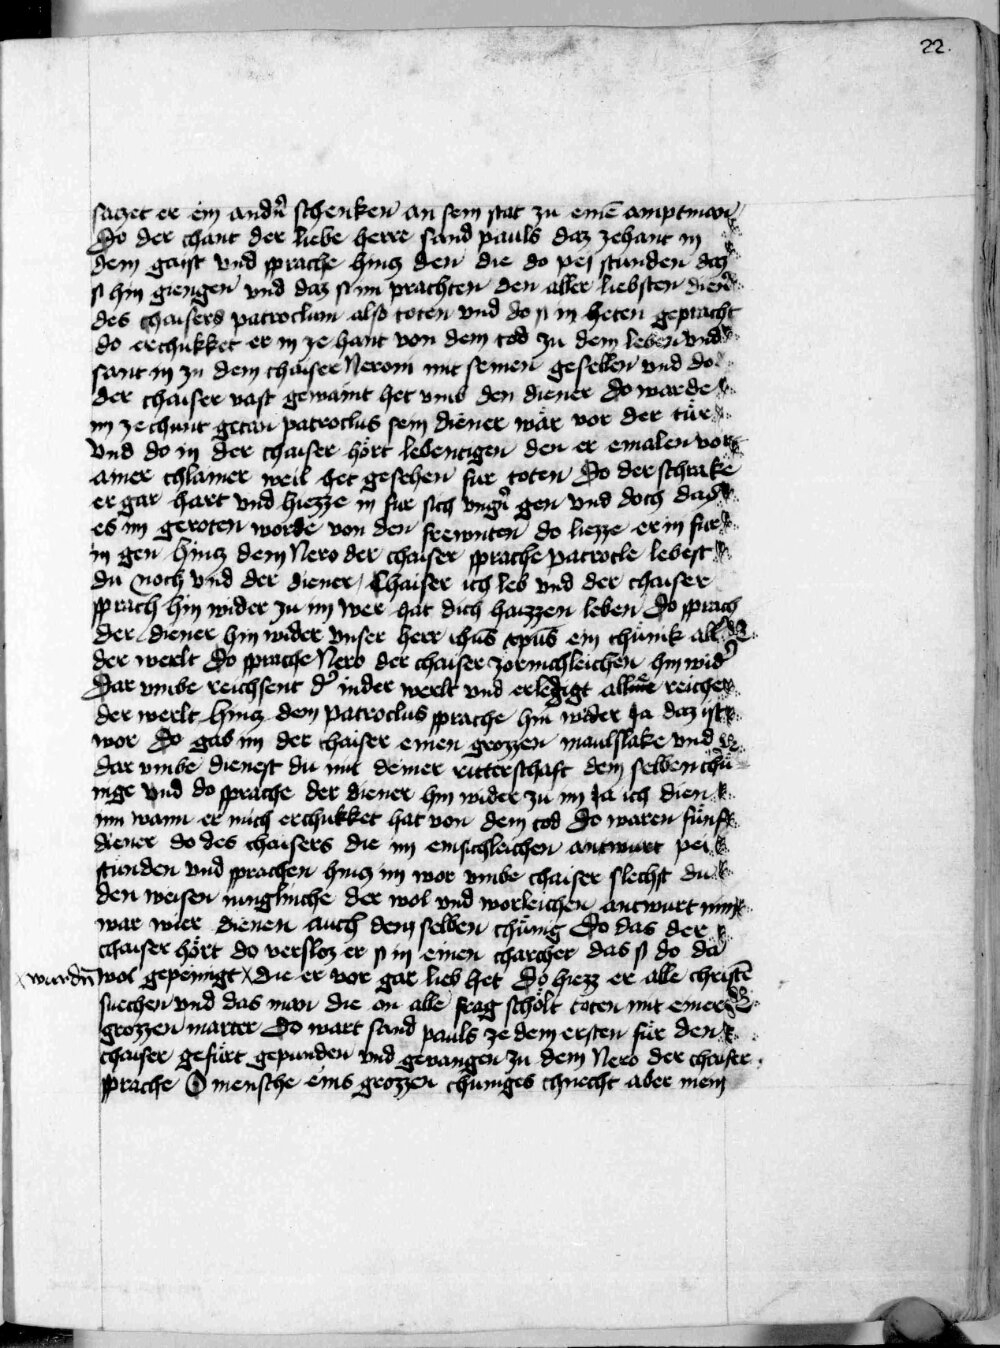 22.
saczet er ein andn̄ schenken an sein stat zu einē amptman
Do der chant der liebe herre sand pauls daz zehant in
dem gaist vnd sprache hincz den die do pei stunden daz
si hin giengen vnd daz si im prachten den aller liebsten dien̄
des chaisers patroclum also toten vnd do si in heten gepracht
do erchukket er in ze hant von dem tod zu dem leben vnd
sant in zu dem chaiser Neroni mit seinen gesellen vnd do
der chaiser vast gewaint het vmb den diener Do warde
im ze chunt getan patroclus sein diener wär vor der tür
Vnd do in der chaiser hört lebentigen den er emalen vor
ainer chlainer weil het gesehen fur toten Do derschrake
er gar hart vnd hiezze in fur sich gen vnd doch daz
es im geroten worde von den frewnten do liezze er in fur
in gen hincz dem Nero der chaiser sprache patrocle lebest
du noch vnd der diener / Chaiser ich leb vnd der chaiser
sprach hin wider zu im wer hat dich haizzen leben Do sprach
der diener hin wider vnser herr ihus xpus ein chünik all
der werlt Do sprache Nero der chaiser zornichleichen hin wid
Dar vmbe reichsent d inder werlt vnd erledigt alleme reiche
der werlt hincz dem patroclus sprache hin wider Ja daz ist
wor Do gab im der chaiser einen grozzen maulslake vnd
dar vmbe dienest du mit deiner ritterschaft dem selben chü
nige Vnd do sprache der diener hin wider zu im Ja ich dien
im wann er mich erchukket hat von dem tod Do waren fünf
diener do des chaisers die im emsichleichen antwurt pei
stunden vnd sprachen hincz im wor vmbe chaiser slechst du
den weisen iungliche der wol vnd worleichen antwurt nim
war wier dienen auch dem selben chünig Do das der
chaiser hört do versloz er si in einen charcher das si do da
wurdn̄ wol gepeinigt die er vor gar lieb het Do hiezz er alle christē
suechen vnd das man die on alle frag schölt töten mit einer
grozzen marter Do wart sand pauls ze dem ersten für den
chaiser gefürt gepunden vnd gevangen zu dem Nero der chaiser
sprache O mensche eins grozzen chuniges chnecht aber mein